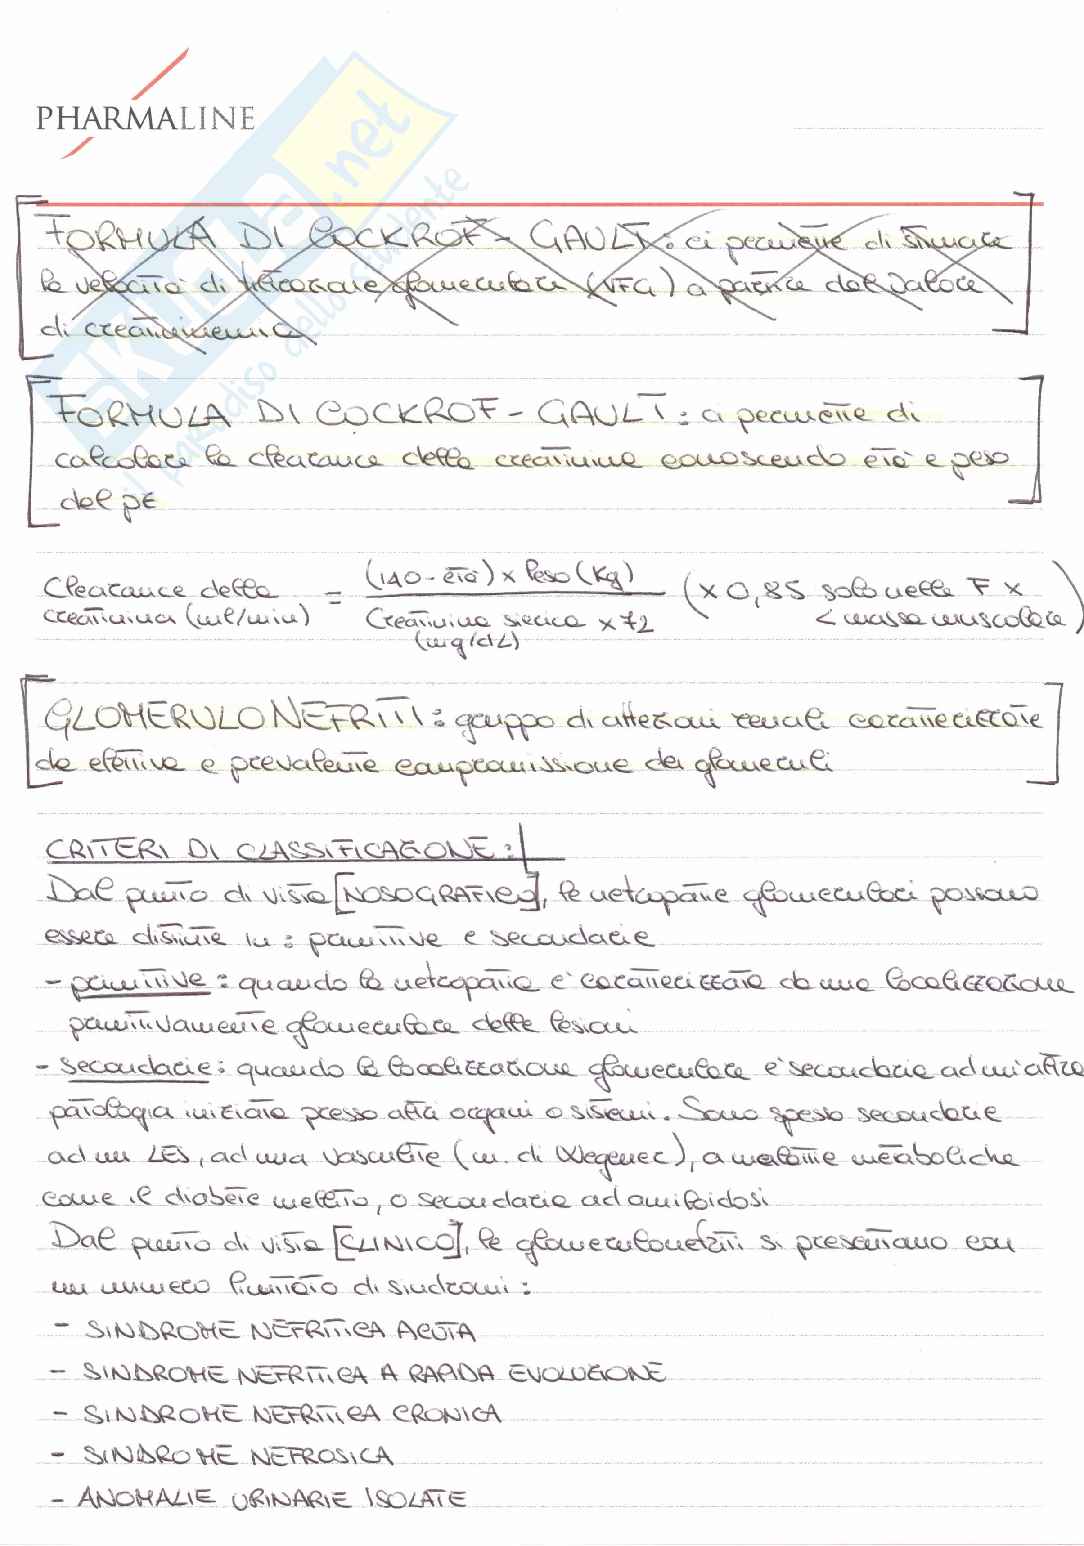 PHARMALINE
skuola.net
il paradiso dello studente
FORMULA DI COCKROF-GAULT: ci permette di stimare
la velocità di filtrazione glomerulare (VFG) a partire dal valore
di creatininemia
FORMULA DI COCKROF-GAULT: ci permette di
calcolare la clearance della creatinina conoscendo età e peso
del pz
Clearance della creatinina (ml/min) = (140-età) x Peso (Kg) / Creatinina sierica x 72 (mg/dL) (x 0,85 solo nelle F x < massa muscolare)
GLOMERULONEFRITI: gruppo di affezioni renali caratterizzate
da elettiva e prevalente compromissione dei glomeruli
CRITERI DI CLASSIFICAZIONE:
Dal punto di vista [NOSOGRAFICO], le nefropatie glomerulari possono
essere distinte in: primitive e secondarie
- primitive: quando la nefropatia è caratterizzata da una localizzazione
primitivamente glomerulare delle lesioni
- secondarie: quando la localizzazione glomerulare è secondaria ad un'altra
patologia iniziata presso altri organi o sistemi. Sono spesso secondarie
ad un LES, ad una vasculite (m. di Wegener), a malattie metaboliche
come il diabete mellito, o secondarie ad amiloidosi
Dal punto di vista [CLINICO], le glomerulonefriti si presentano con
un numero limitato di sindromi:
- SINDROME NEFRITICA ACUTA
- SINDROME NEFRITICA A RAPIDA EVOLUZIONE
- SINDROME NEFRITICA CRONICA
- SINDROME NEFROSICA
- ANOMALIE URINARIE ISOLATE